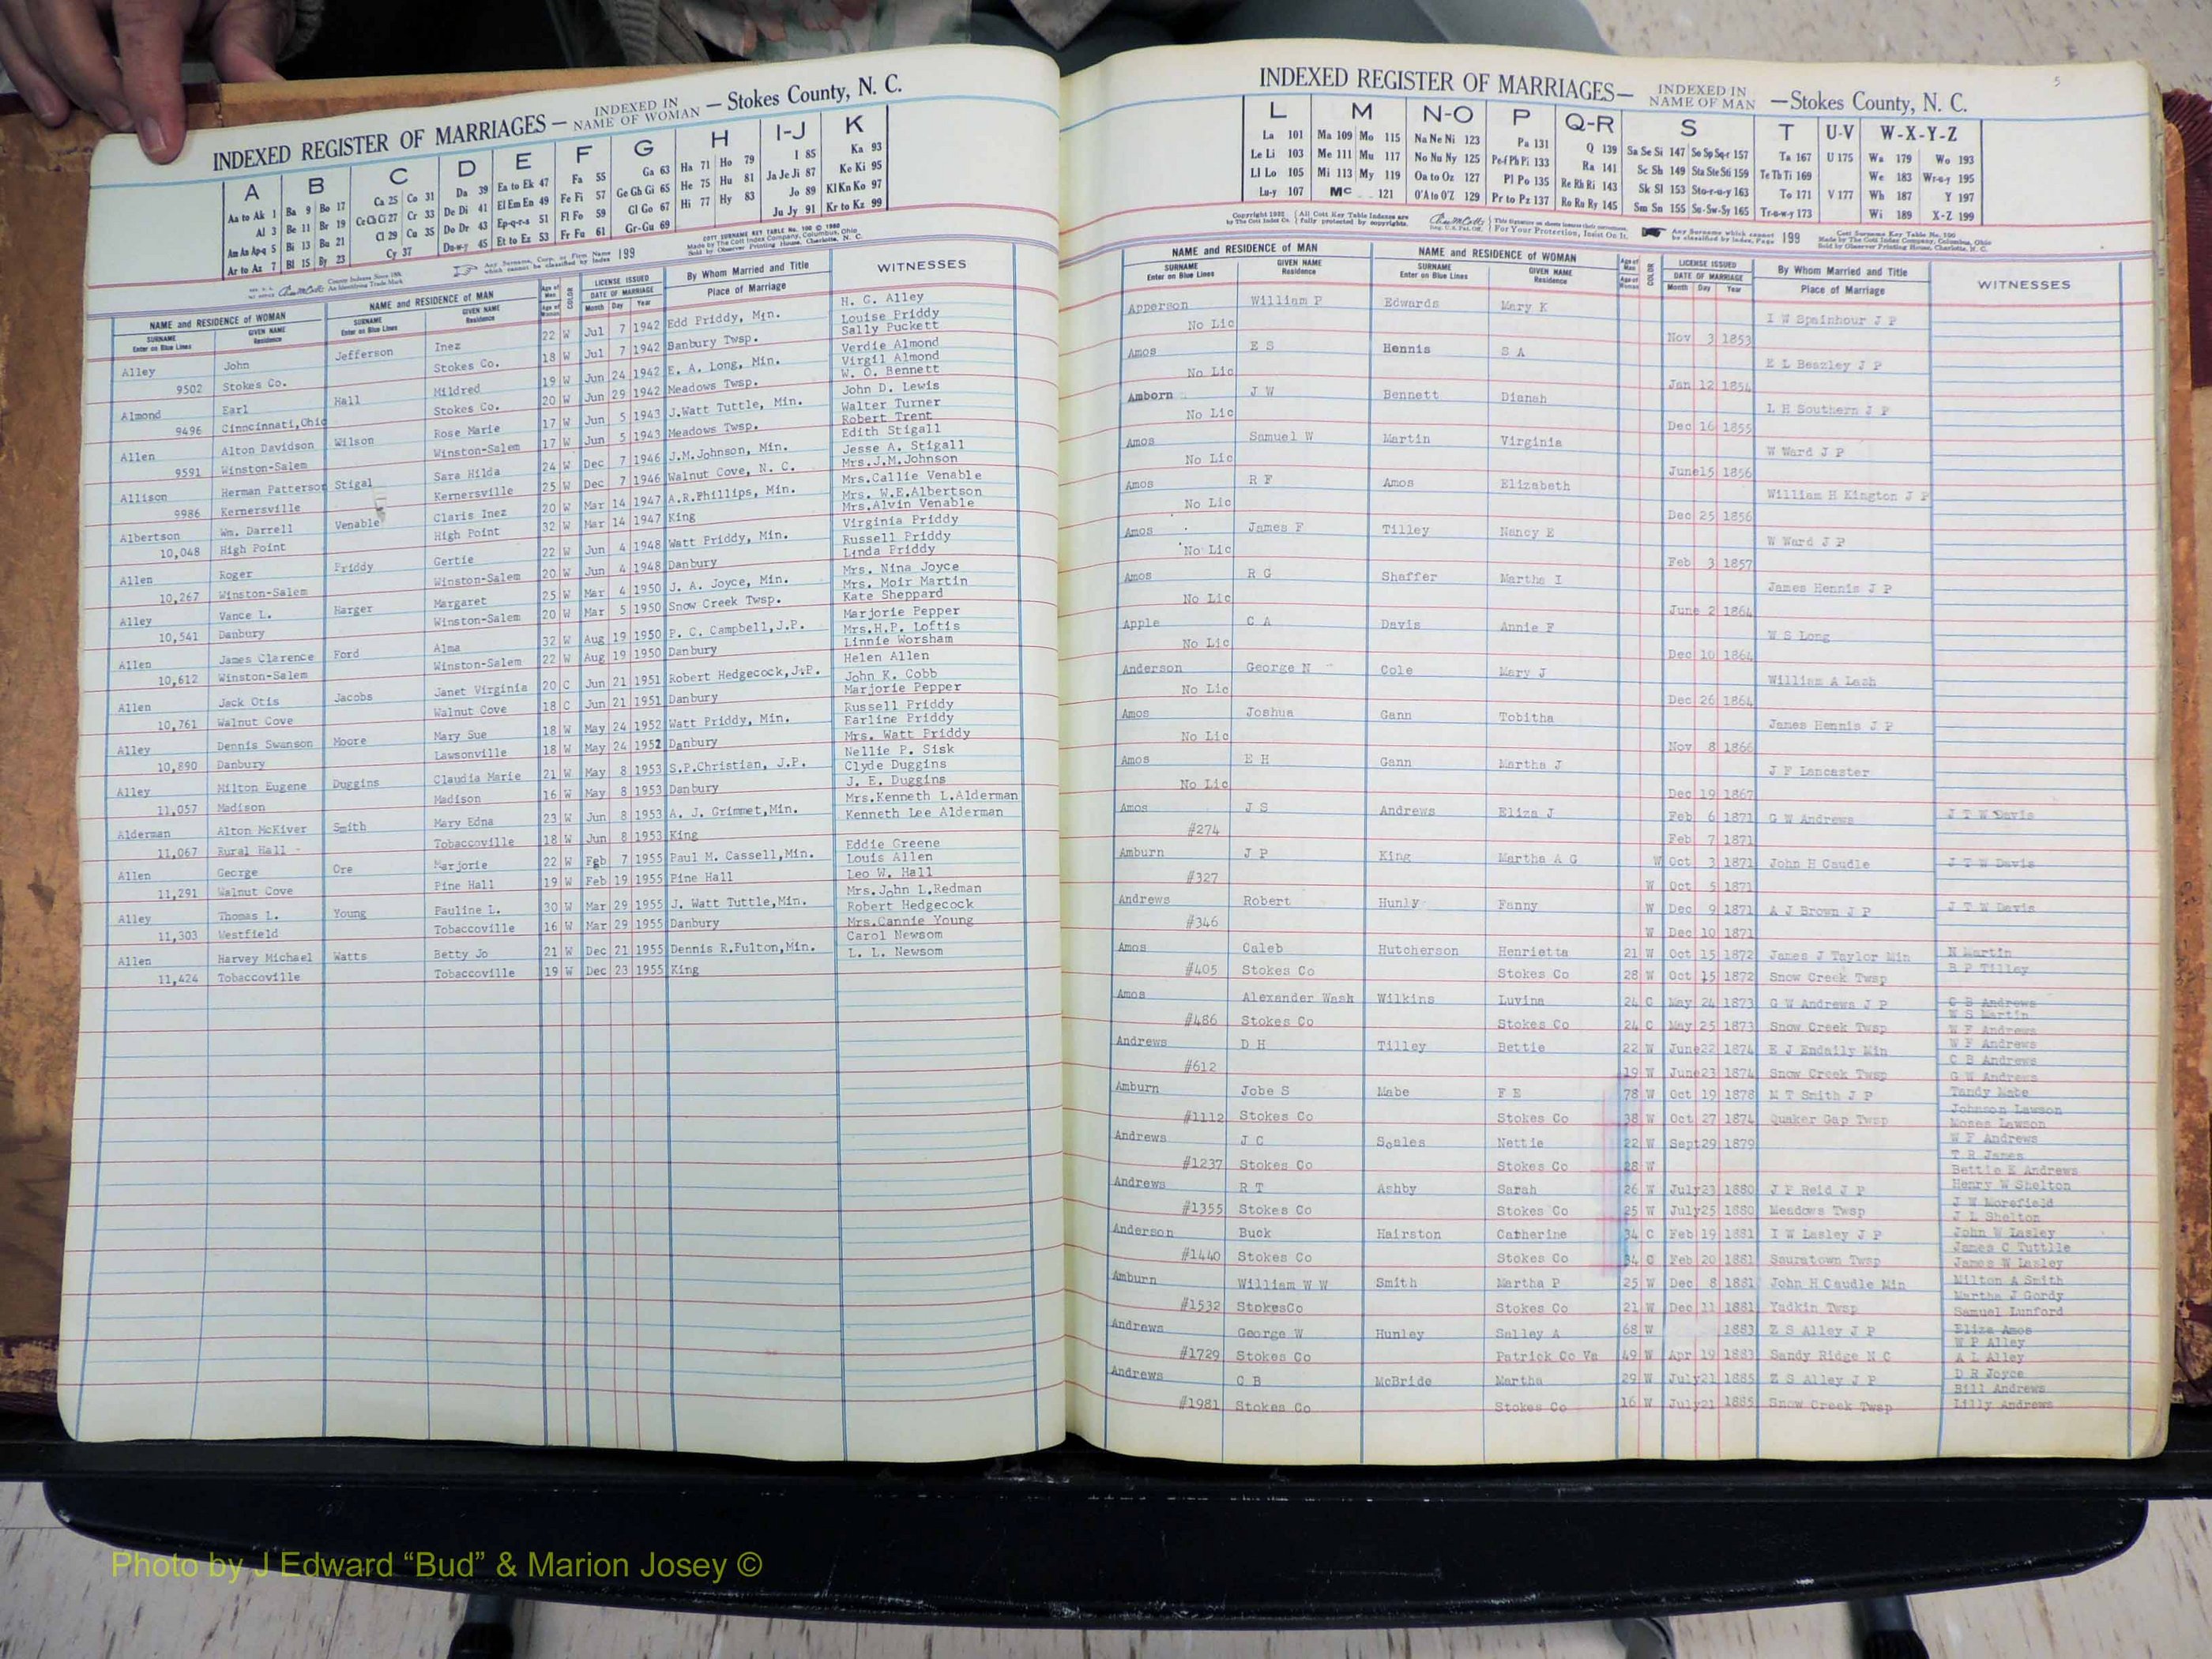 INDEXED REGISTER OF MARRIAGES — INDEXED IN NAME OF WOMAN — Stokes County, N. C.
A B C D E F G H I-J K
Aa to Ak 1 Ba 9 Bo 17 Ca 25 Co 31 Da 39 Ea to Ek 47 Fa 55 Ga 63 Ha 71 Ho 79 I 85 Ka 93
Al 3 Be 11 Br 19 Ce Ch Ci 27 Cr 33 De Di 41 El Em En 49 Fe Fi 57 Ge Gh Gi 65 He 75 Hu 81 Ja Je Ji 87 Ke Ki 95
Am An Ap-q 5 Bi 13 Bu 21 Cl 29 Cu 35 Do Dr 43 Ep-q-r-s 51 Fl Fo 59 Gl Go 67 Hi 77 Hy 83 Jo 89 Kl Kn Ko 97
Ar to Az 7 Bl 15 By 23 Cy 37 Du-w-y 45 Et to Ez 53 Fr Fu 61 Gr-Gu 69 Ju Jy 91 Kr to Kz 99
Any Surname, Corp. or Firm Name which cannot be classified by Index 199
Made by The Cott Index Company, Columbus, Ohio
Sold by Observer Printing House, Charlotte, N. C.
NAME and RESIDENCE OF WOMAN NAME and RESIDENCE OF MAN Age of Man Age of Woman COLOR LICENSE ISSUED DATE OF MARRIAGE By Whom Married and Title Place of Marriage WITNESSES
SURNAME Enter on Blue Lines GIVEN NAME Residence SURNAME Enter on Blue Lines GIVEN NAME Residence Month Day Year
H. G. Alley
Alley John Jefferson Inez 22 W Jul 7 1942 Edd Priddy, Min. Louise Priddy
Sally Puckett
9502 Stokes Co. Stokes Co. 18 W Jul 7 1942 Danbury Twsp. Verdie Almond
Almond Earl Hall Mildred 19 W Jun 24 1942 E. A. Long, Min. Virgil Almond
W. O. Bennett
9496 Cinncinnati,Ohio Stokes Co. 20 W Jun 29 1942 Meadows Twsp. John D. Lewis
Allen Alton Davidson Wilson Rose Marie 17 W Jun 5 1943 J.Watt Tuttle, Min. Walter Turner
Robert Trent
9591 Winston-Salem Winston-Salem 17 W Jun 5 1943 Meadows Twsp. Edith Stigall
Allison Herman Patterson Stigal Sara Hilda 24 W Dec 7 1946 J.M.Johnson, Min. Jesse A. Stigall
Mrs.J.M.Johnson
9986 Kernersville Kernersville 25 W Dec 7 1946 Walnut Cove, N. C. Mrs.Callie Venable
Albertson Wm. Darrell Venable Claris Inez 20 W Mar 14 1947 A.R.Phillips, Min. Mrs. W.E.Albertson
Mrs.Alvin Venable
10,048 High Point High Point 32 W Mar 14 1947 King Virginia Priddy
Allen Roger Priddy Gertie 22 W Jun 4 1948 Watt Priddy, Min. Russell Priddy
Linda Priddy
10,267 Winston-Salem Winston-Salem 20 W Jun 4 1948 Danbury Mrs. Nina Joyce
Alley Vance L. Harger Margaret 25 W Mar 4 1950 J. A. Joyce, Min. Mrs. Moir Martin
Kate Sheppard
10,541 Danbury Winston-Salem 20 W Mar 5 1950 Snow Creek Twsp. Marjorie Pepper
Allen James Clarence Ford Alma 32 W Aug 19 1950 P. C. Campbell,J.P. Mrs.H.P. Loftis
Linnie Worsham
10,612 Winston-Salem Winston-Salem 22 W Aug 19 1950 Danbury Helen Allen
Allen Jack Otis Jacobs Janet Virginia 20 C Jun 21 1951 Robert Hedgecock,J.P. John K. Cobb
Marjorie Pepper
10,761 Walnut Cove Walnut Cove 18 C Jun 21 1951 Danbury Russell Priddy
Alley Dennis Swanson Moore Mary Sue 18 W May 24 1952 Watt Priddy, Min. Earline Priddy
Mrs. Watt Priddy
10,890 Danbury Lawsonville 18 W May 24 1952 Danbury Nellie P. Sisk
Alley Milton Eugene Duggins Claudia Marie 21 W May 8 1953 S.P.Christian, J.P. Clyde Duggins
J. E. Duggins
11,057 Madison Madison 16 W May 8 1953 Danbury Mrs.Kenneth L.Alderman
Alderman Alton McKiver Smith Mary Edna 23 W Jun 8 1953 A. J. Grimmet,Min. Kenneth Lee Alderman
11,067 Rural Hall Tobaccoville 18 W Jun 8 1953 King Eddie Greene
Allen George Ore Marjorie 22 W Feb 7 1955 Paul M. Cassell,Min. Louis Allen
11,291 Walnut Cove Pine Hall 19 W Feb 19 1955 Pine Hall Leo W. Hall
Mrs.John L.Redman
Alley Thomas L. Young Pauline L. 30 W Mar 29 1955 J. Watt Tuttle,Min. Robert Hedgecock
11,303 Westfield Tobaccoville 16 W Mar 29 1955 Danbury Mrs.Cannie Young
Carol Newsom
Allen Harvey Michael Watts Betty Jo 21 W Dec 21 1955 Dennis R.Fulton,Min. L. L. Newsom
11,424 Tobaccoville Tobaccoville 19 W Dec 23 1955 King
5
INDEXED REGISTER OF MARRIAGES— INDEXED IN NAME OF MAN —Stokes County, N. C.
L M N-O P Q-R S T U-V W-X-Y-Z
La 101 Ma 109 Mo 115 Na Ne Ni 123 Pa 131 Q 139 Sa Se Si 147 So Sp Sq-r 157 Ta 167 U 175 Wa 179 Wo 193
Le Li 103 Me 111 Mu 117 No Nu Ny 125 Pe-f Ph Pi 133 Ra 141 Sc Sh 149 Sta Ste Sti 159 Te Th Ti 169 We 183 Wr-u-y 195
Ll Lo 105 Mi 113 My 119 Oa to Oz 127 Pl Po 135 Re Rh Ri 143 Sk Sl 153 Sto-r-u-y 163 To 171 V 177 Wh 187 Y 197
Lu-y 107 Mc 121 O'A to O'Z 129 Pr to Pz 137 Ro Ru Ry 145 Sm Sn 155 Su-Sw-Sy 165 Tr-u-w-y 173 Wi 189 X-Z 199
Any Surname which cannot be classified by Index, Page 199
NAME and RESIDENCE OF MAN NAME and RESIDENCE OF WOMAN Age of Man Age of Woman COLOR LICENSE ISSUED DATE OF MARRIAGE By Whom Married and Title Place of Marriage WITNESSES
SURNAME Enter on Blue Lines GIVEN NAME Residence SURNAME Enter on Blue Lines GIVEN NAME Residence Month Day Year
Apperson William P Edwards Mary K I W Spainhour J P
No Lic Nov 3 1853
Amos E S Hennis S A E L Beazley J P
No Lic Jan 12 1854
Amborn J W Bennett Dianah L H Southern J P
No Lic Dec 16 1855
Amos Samuel W Martin Virginia W Ward J P
No Lic June15 1856
Amos R F Amos Elizabeth William H Kington J P
No Lic Dec 25 1856
Amos James F Tilley Nancy E W Ward J P
No Lic Feb 3 1857
Amos R G Shaffer Martha I James Hennis J P
No Lic June 2 1864
Apple C A Davis Annie F W S Long
No Lic Dec 10 1864
Anderson George N Cole Mary J William A Lash
No Lic Dec 26 1864
Amos Joshua Gann Tobitha James Hennis J P
No Lic Nov 8 1866
Amos E H Gann Martha J J F Lancaster
No Lic Dec 19 1867
Amos J S Andrews Eliza J Feb 6 1871 G W Andrews J T W Davis
#274 Feb 7 1871
Amburn J P King Martha A G W Oct 3 1871 John H Caudle J T W Davis
#327 W Oct 5 1871
Andrews Robert Hunly Fanny W Dec 9 1871 A J Brown J P J T W Davis
#346 W Dec 10 1871
Amos Caleb Hutcherson Henrietta 21 W Oct 15 1872 James J Taylor Min N Martin
#405 Stokes Co Stokes Co 28 W Oct 15 1872 Snow Creek Twsp B P Tilley
Amos Alexander Wash Wilkins Luvina 24 C May 24 1873 G W Andrews J P C B Andrews
W S Martin
#486 Stokes Co Stokes Co 24 C May 25 1873 Snow Creek Twsp W F Andrews
Andrews D H Tilley Bettie 22 W June22 1874 E J Endaily Min W F Andrews
C B Andrews
#612 19 W June23 1874 Snow Creek Twsp G W Andrews
Amburn Jobe S Mabe F E 78 W Oct 19 1878 M T Smith J P Tandy Mabe
Johnson Lawson
#1112 Stokes Co Stokes Co 38 W Oct 27 1874 Quaker Gap Twsp Moses Lawson
Andrews J C Scales Nettie 22 W Sept29 1879 W F Andrews
T R James
#1237 Stokes Co Stokes Co 28 W Bettie K Andrews
Andrews R T Ashby Sarah 26 W July23 1880 J F Reid J P Henry W Shelton
J W Morefield
#1355 Stokes Co Stokes Co 25 W July25 1880 Meadows Twsp J L Shelton
Anderson Buck Hairston Catherine 34 C Feb 19 1881 I W Lasley J P John W Lasley
James C Tuttlle
#1440 Stokes Co Stokes Co 34 C Feb 20 1881 Sauratown Twsp James W Lasley
Amburn William W W Smith Martha P 25 W Dec 8 1881 John H Caudle Min Milton A Smith
Martha J Gordy
#1532 StokesCo Stokes Co 21 W Dec 11 1881 Yadkin Twsp Samuel Lunford
Andrews George W Hunley Salley A 68 W 1883 Z S Alley J P Eliza Amos
W P Alley
#1729 Stokes Co Patrick Co Va 49 W Apr 19 1883 Sandy Ridge N C A L Alley
Andrews C B McBride Martha 29 W July21 1885 Z S Alley J P D R Joyce
Bill Andrews
#1981 Stokes Co Stokes Co 16 W July21 1885 Snow Creek Twsp Lilly Andrews
Photo by J Edward “Bud” & Marion Josey ©